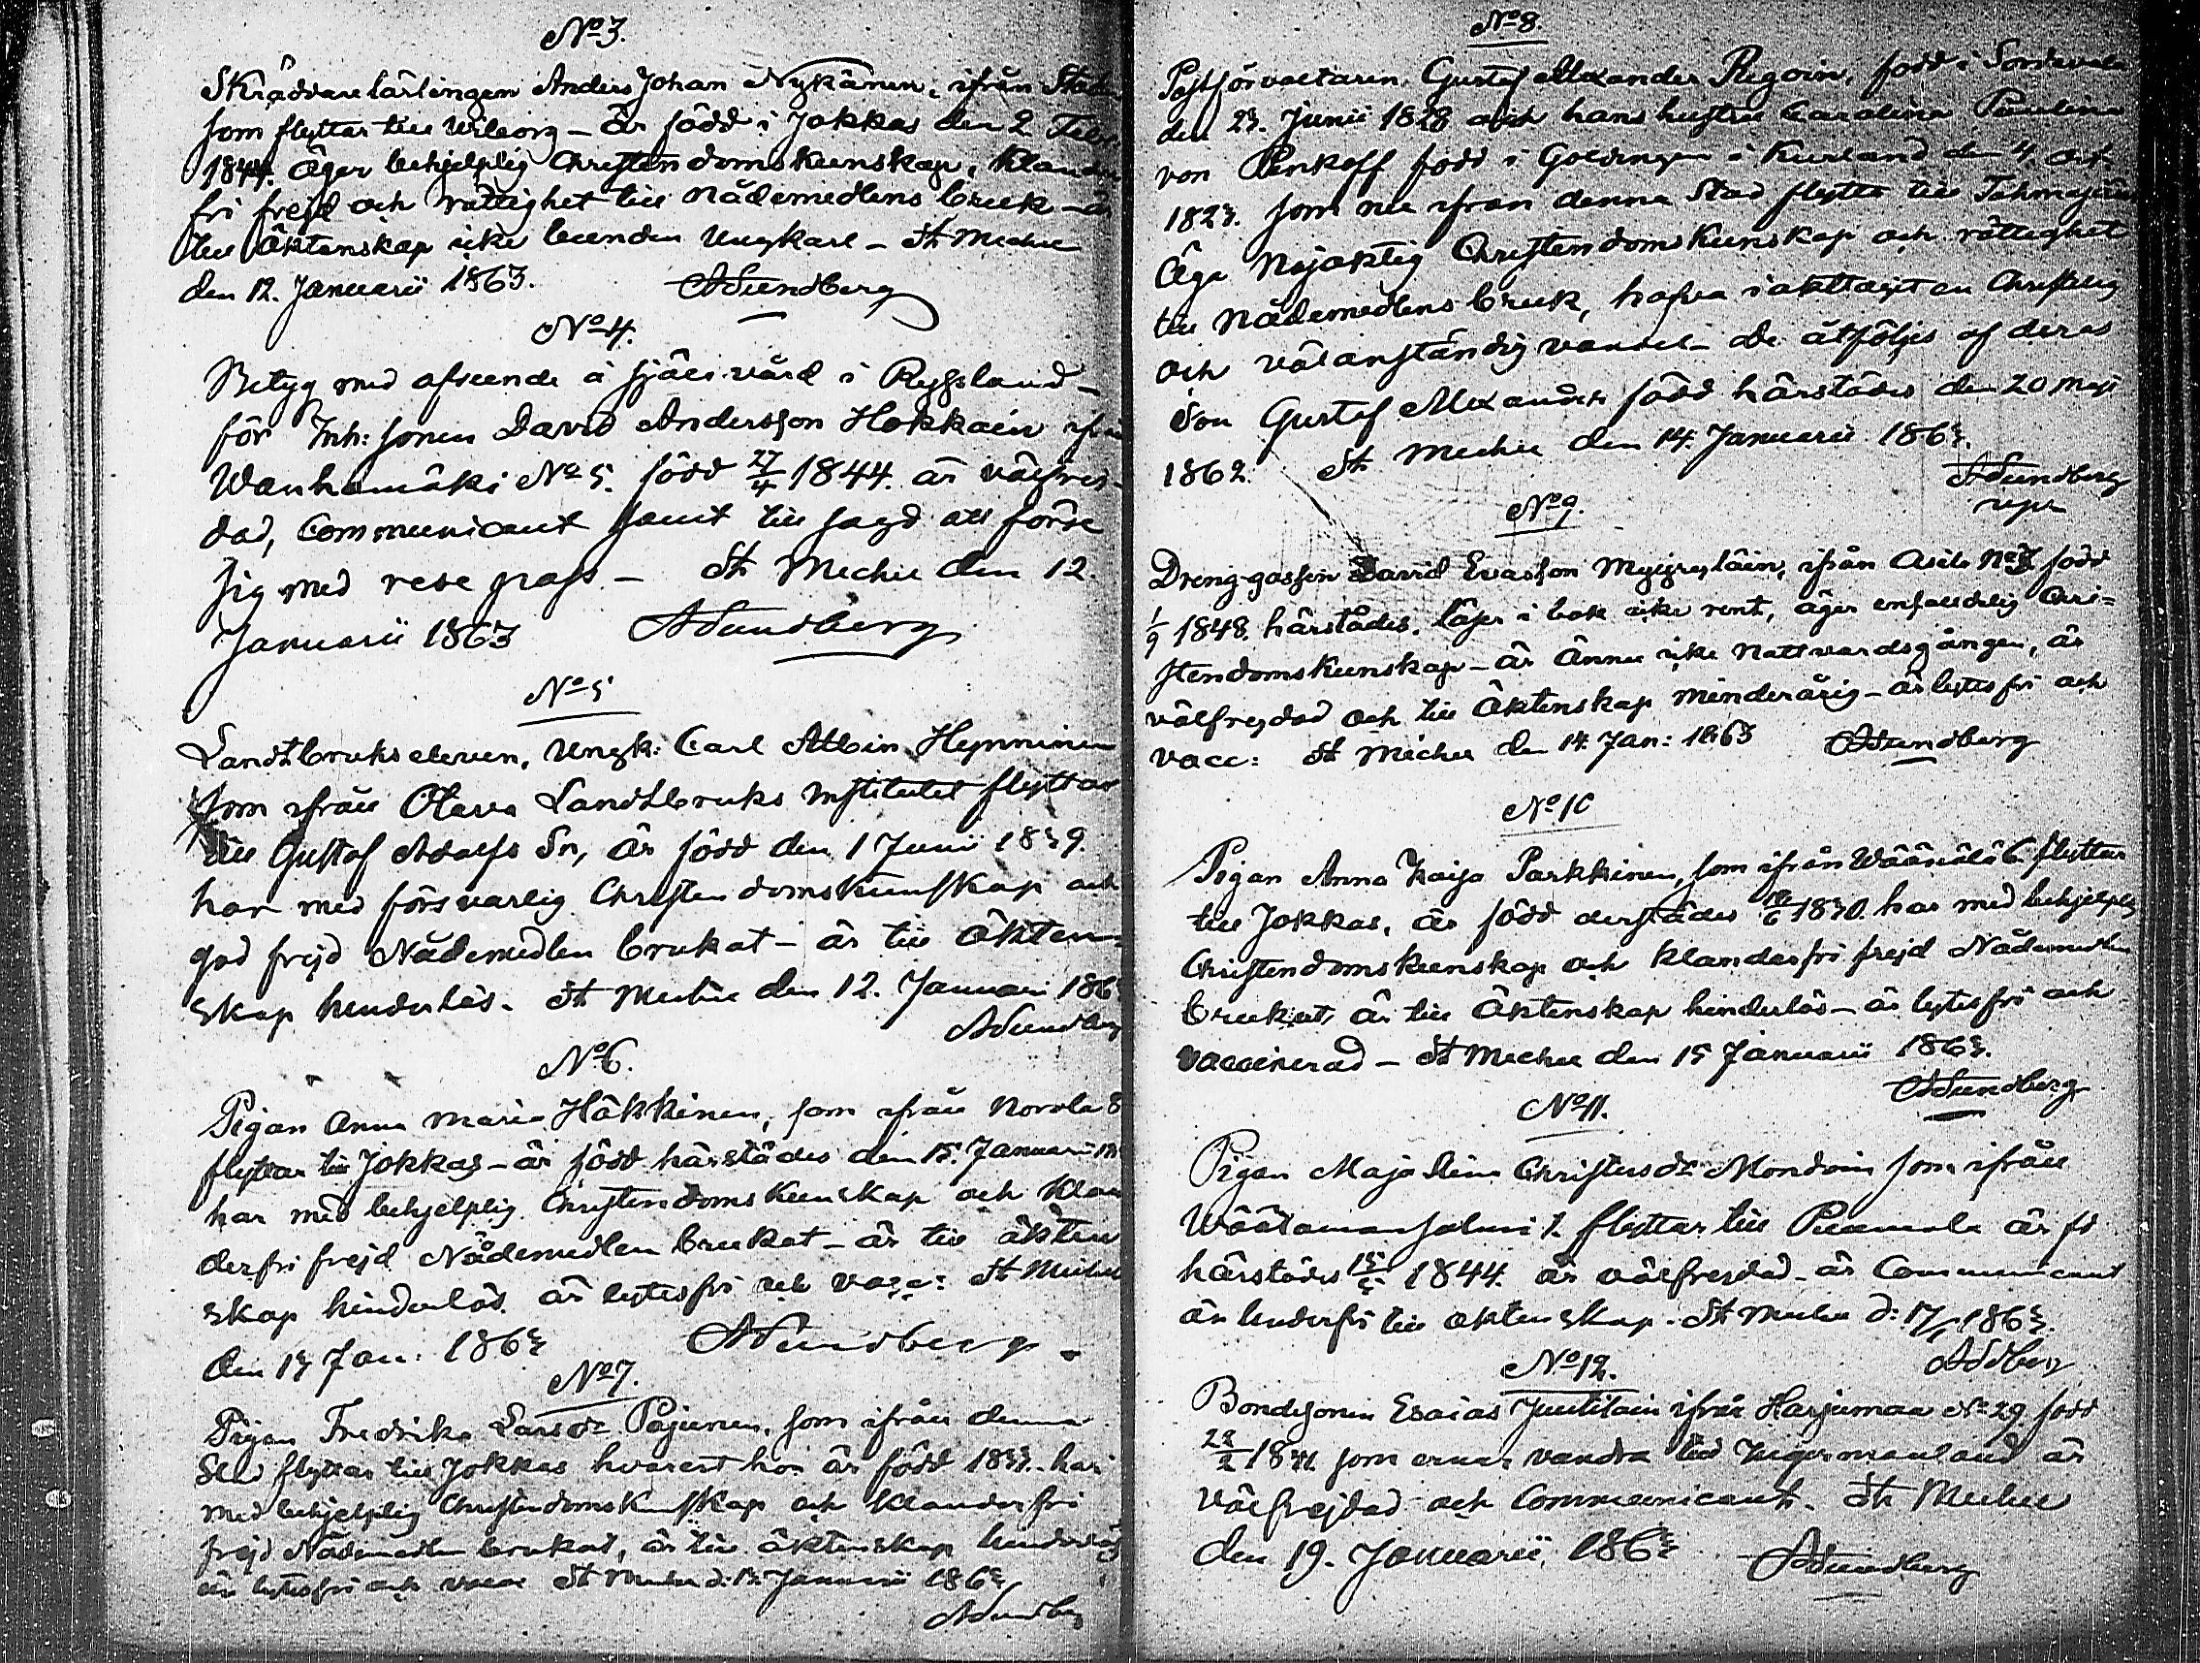 No 3.
Skräddarelärlingen Anders Johan Nykänen, ifrån Staden
som flyttar till Wiborg – är född i Jokkas den 2 Febr
1844. Äger behjelplig Christendomskunskap, klander
fri frejd och rättighet till Nådemedlens bruk – är
till Äktenskap icke bunden Ungkarl – St Michel
den 12. Januarii 1863. ASundberg
No 4.
Betyg med afseende å själavård i Ryssland –
för Inh: sonen David Andersson Hokkain ifrån
Wanhamäki No 5. född 27/4 1844. är välfrej-
dad, Communicant samt till sagd att förse
sig med rese pass. – St Michel den 12.
Januarii 1863 ASundberg
No 5
Landtbrukseleven, Ungk: Carl Albin Hynninen
som ifrån Otava Landtbruks Institutet flyttar
till Gustaf Adolfs Sn, är född den 1 Junii 1839.
har med försvarlig Christendomskunskap och
god frejd Nådemedlen brukat – är till äkten-
skap hinderlös. St Michel den 12. Januari 1863
ASundberg
No 6.
Pigan Anna Maria Häkkinen, som ifrån Norola 8
flyttar till Jokkas – är född härstädes den 15. Januarii
har med behjelplig Christendomskunskap och klan
derfri frejd Nådemedlen brukat – är till äkten
skap hinderlös. är lytesfri och vacc: St Michel
den 13 Jan: 1863 ASundberg
No 7.
Pigan Fredrika Larsdr Pajunen, som ifrån denna
Stad flyttar till Jokkas hvarest hon är född 1833. har
med behjelplig Christendomskunskap och klanderfri
frejd Nådemedlen brukat, är till äktenskap hinderlös
är lytesfri och vacc St Michel d: 13 Januarii 1863
ASundberg
No 8.
Postförvaltaren, Gustaf Alexander Rigoin, född i Sordavala
den 23. Junii 1828 och hans hustru Carolina Paulina
von Renkoff född i Goldingen i Kurland den 4. Oct
1823. som nu ifrån denna Stad flytta till Tohmajärvi
Äga Nöjaktig Christendoms Kunskap och rättighet
till Nådemedlens bruk, hafva iakttagit en Christelig
och välanständig vandel – De åtföljes af deras
Son Gustaf Alexander född härstädes den 20 Maji
1862. St Michel den 14. Januarii 1863.
ASundberg
No 9.
Dreng-gossen David Evasson ifrån Asila No 7 född
1/9 1848. härstädes. läser i bok icke rent, äger enfaldelig Chri=
stendomskunskap – är ännu icke Nattvardsgången, är
välfrejdad och till Äktenskap minderårig – är lytesfri och
vacc: St Michel den 14. Jan: 1863 ASundberg
No 10
Pigan Anna Kaisa Parkkinen, som ifrån Wäänälä 6. flyttar
till Jokkas, är född derstädes 1830. har med behjelplig
Christendomskunskap och klanderfri frejd Nådemedlen
brukat, är till Äktenskap hinderlös – är lytesfri och
vaccinerad – St Michel den 15 Januarii 1863.
ASundberg
No 11.
Pigan Maja Stina Christersdr Mondoin som ifrån
Wäätämänsalmi 1. flyttar till Puumala är fd
härstädes 1844. är välfrejdad – är Communicant
är hinderfri till äktenskap. St Michel d: 17/1 1863.
ASdberg
No 12.
Bondesonen Esaias Juutilain ifrån Harjumaa No 29 född
28/2 18 som ernar vandra till Ingermanland är
välfrejdad och Communicant. St Michel
den 19. Januarii, 1863 ASundberg